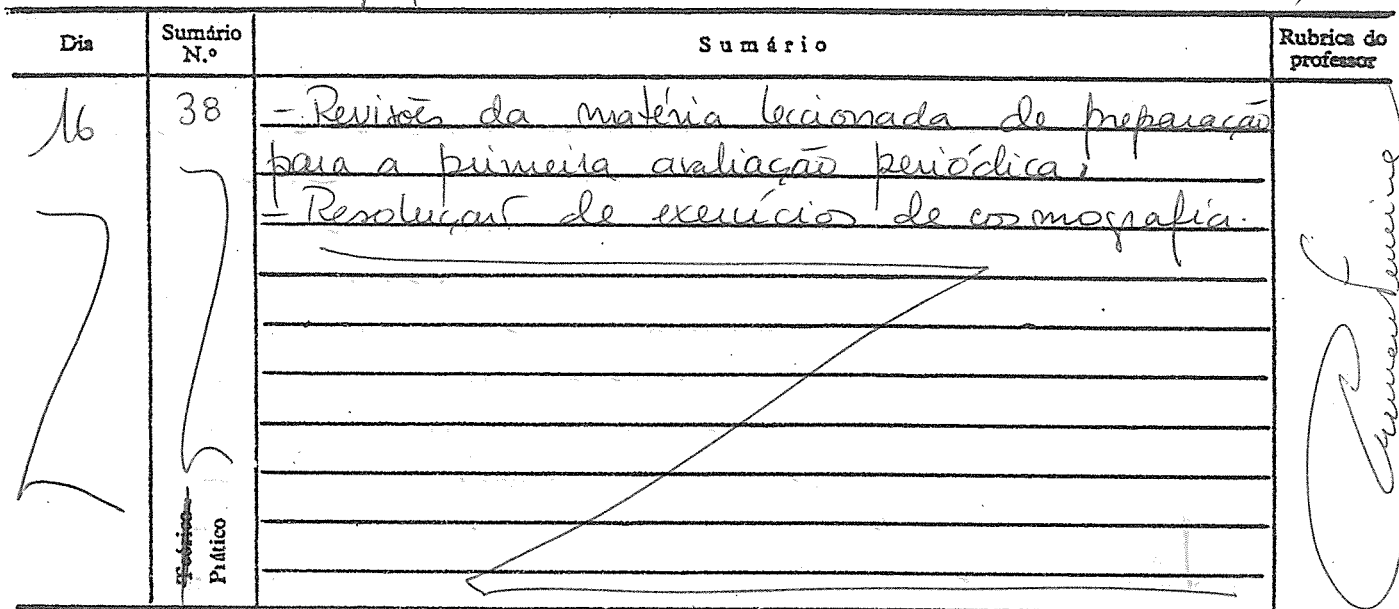 Dia
Sumário N.º
Sumário
Rubrica do professor
16
38
- Revisões da matéria leccionada de preparação
para a primeira avaliação periódica;
- Resolução de exercícios de cosmografia.
Teórico
Prático